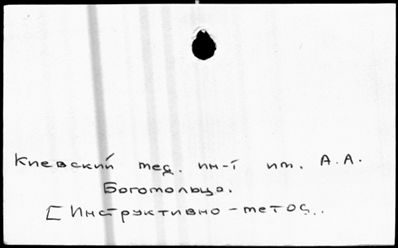 Киевский мед. ин-т им. А.А.
Богомольца.
[Инструктивно-метод..